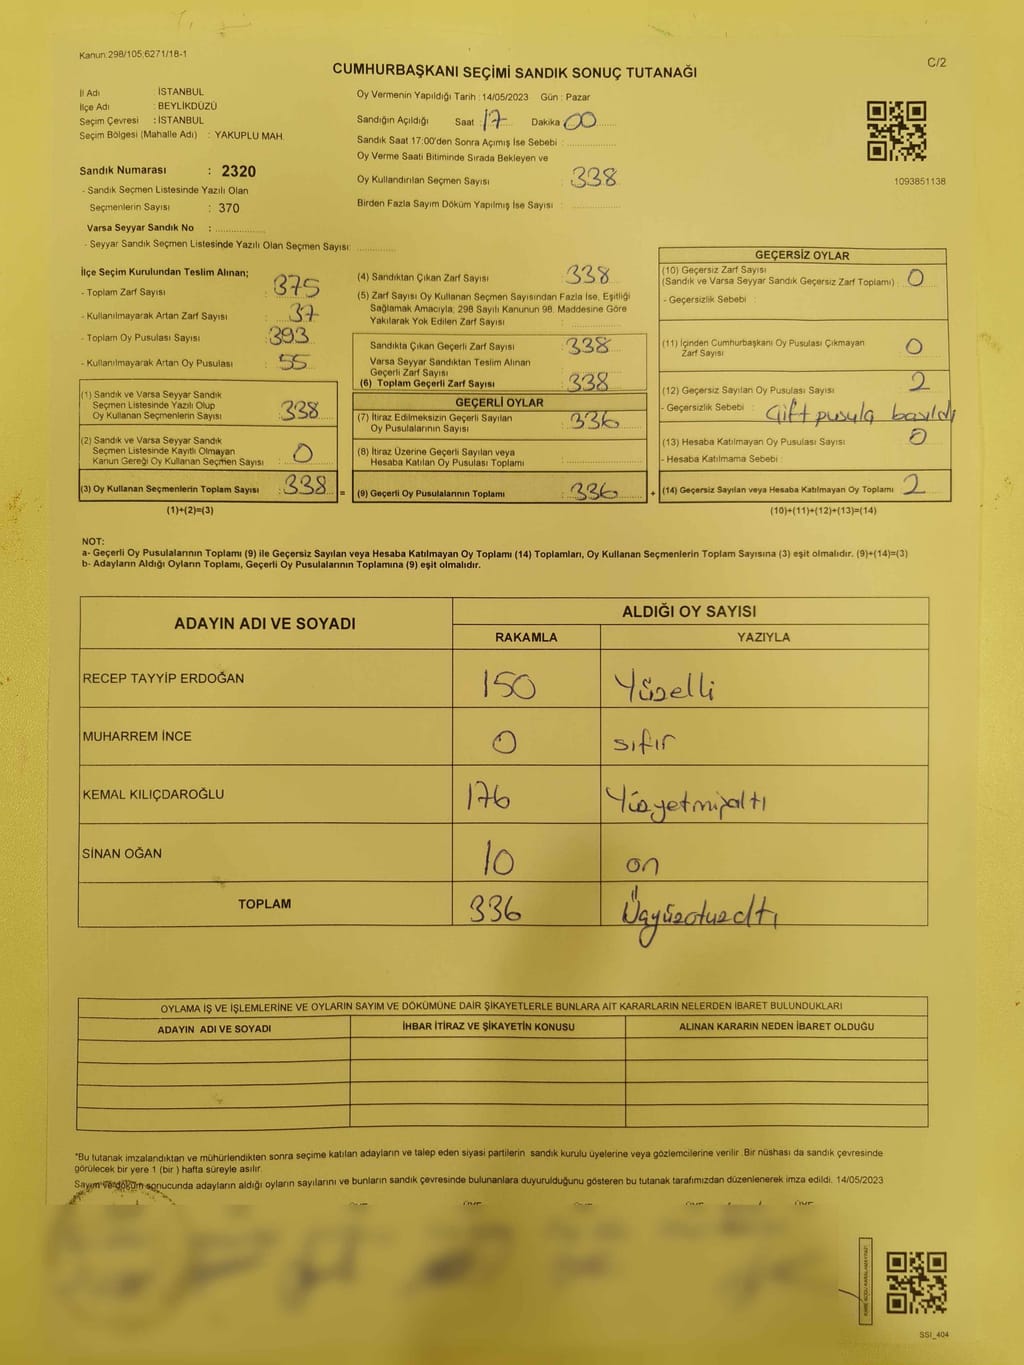 Kanun:298/105;6271/18-1
C/2
CUMHURBAŞKANI SEÇİMİ SANDIK SONUÇ TUTANAĞI
İl Adı : İSTANBUL
İlçe Adı : BEYLİKDÜZÜ
Seçim Çevresi : İSTANBUL
Seçim Bölgesi (Mahalle Adı) : YAKUPLU MAH.
Sandık Numarası : 2320
- Sandık Seçmen Listesinde Yazılı Olan
Seçmenlerin Sayısı : 370
Varsa Seyyar Sandık No :
- Seyyar Sandık Seçmen Listesinde Yazılı Olan Seçmen Sayısı:
Oy Vermenin Yapıldığı Tarih : 14/05/2023 Gün : Pazar
Sandığın Açıldığı Saat : 17 Dakika : 00
Sandık Saat 17:00'den Sonra Açımış İse Sebebi :
Oy Verme Saati Bitiminde Sırada Bekleyen ve
Oy Kullandırılan Seçmen Sayısı : 338
Birden Fazla Sayım Döküm Yapılmış İse Sayısı :
1093851138
İlçe Seçim Kurulundan Teslim Alınan;
- Toplam Zarf Sayısı : 375
- Kullanılmayarak Artan Zarf Sayısı : 37
- Toplam Oy Pusulası Sayısı : 393
- Kullanılmayarak Artan Oy Pusulası : 55
(1) Sandık ve Varsa Seyyar Sandık
Seçmen Listesinde Yazılı Olup
Oy Kullanan Seçmenlerin Sayısı : 338
(2) Sandık ve Varsa Seyyar Sandık
Seçmen Listesinde Kayıtlı Olmayan
Kanun Gereği Oy Kullanan Seçmen Sayısı : 0
(3) Oy Kullanan Seçmenlerin Toplam Sayısı : 338 =
(1)+(2)=(3)
(4) Sandıktan Çıkan Zarf Sayısı : 338
(5) Zarf Sayısı Oy Kullanan Seçmen Sayısından Fazla İse, Eşitliği
Sağlamak Amacıyla, 298 Sayılı Kanunun 98. Maddesine Göre
Yakılarak Yok Edilen Zarf Sayısı :
Sandıkta Çıkan Geçerli Zarf Sayısı : 338
Varsa Seyyar Sandıktan Teslim Alınan
Geçerli Zarf Sayısı :
(6) Toplam Geçerli Zarf Sayısı : 338
GEÇERLİ OYLAR
(7) İtiraz Edilmeksizin Geçerli Sayılan
Oy Pusulalarının Sayısı : 336
(8) İtiraz Üzerine Geçerli Sayılan veya
Hesaba Katılan Oy Pusulası Toplamı :
(9) Geçerli Oy Pusulalarının Toplamı : 336 +
GEÇERSİZ OYLAR
(10) Geçersiz Zarf Sayısı
(Sandık ve Varsa Seyyar Sandık Geçersiz Zarf Toplamı) : 0
- Geçersizlik Sebebi :
(11) İçinden Cumhurbaşkanı Oy Pusulası Çıkmayan
Zarf Sayısı : 0
(12) Geçersiz Sayılan Oy Pusulası Sayısı : 2
- Geçersizlik Sebebi : Çift pusula basıldı
(13) Hesaba Katılmayan Oy Pusulası Sayısı : 0
- Hesaba Katılmama Sebebi :
(14) Geçersiz Sayılan veya Hesaba Katılmayan Oy Toplamı : 2
(10)+(11)+(12)+(13)=(14)
NOT:
a- Geçerli Oy Pusulalarının Toplamı (9) ile Geçersiz Sayılan veya Hesaba Katılmayan Oy Toplamı (14) Toplamları, Oy Kullanan Seçmenlerin Toplam Sayısına (3) eşit olmalıdır. (9)+(14)=(3)
b- Adayların Aldığı Oyların Toplamı, Geçerli Oy Pusulalarının Toplamına (9) eşit olmalıdır.
ADAYIN ADI VE SOYADI
ALDIĞI OY SAYISI
RAKAMLA YAZIYLA
RECEP TAYYİP ERDOĞAN 150 Yüzelli
MUHARREM İNCE 0 sıfır
KEMAL KILIÇDAROĞLU 176 Yüzyetmişaltı
SİNAN OĞAN 10 on
TOPLAM 336 Üçyüzotuzaltı
OYLAMA İŞ VE İŞLEMLERİNE VE OYLARIN SAYIM VE DÖKÜMÜNE DAİR ŞİKAYETLERLE BUNLARA AİT KARARLARIN NELERDEN İBARET BULUNDUKLARI
ADAYIN ADI VE SOYADI İHBAR İTİRAZ VE ŞİKAYETİN KONUSU ALINAN KARARIN NEDEN İBARET OLDUĞU
*Bu tutanak imzalandıktan ve mühürlendikten sonra seçime katılan adayların ve talep eden siyasi partilerin sandık kurulu üyelerine veya gözlemcilerine verilir .Bir nüshası da sandık çevresinde
görülecek bir yere 1 (bir ) hafta süreyle asılır.
Sayım ve döküm sonucunda adayların aldığı oyların sayılarını ve bunların sandık çevresinde bulunanlara duyurulduğunu gösteren bu tutanak tarafımızdan düzenlenerek imza edildi. 14/05/2023
SSI_404